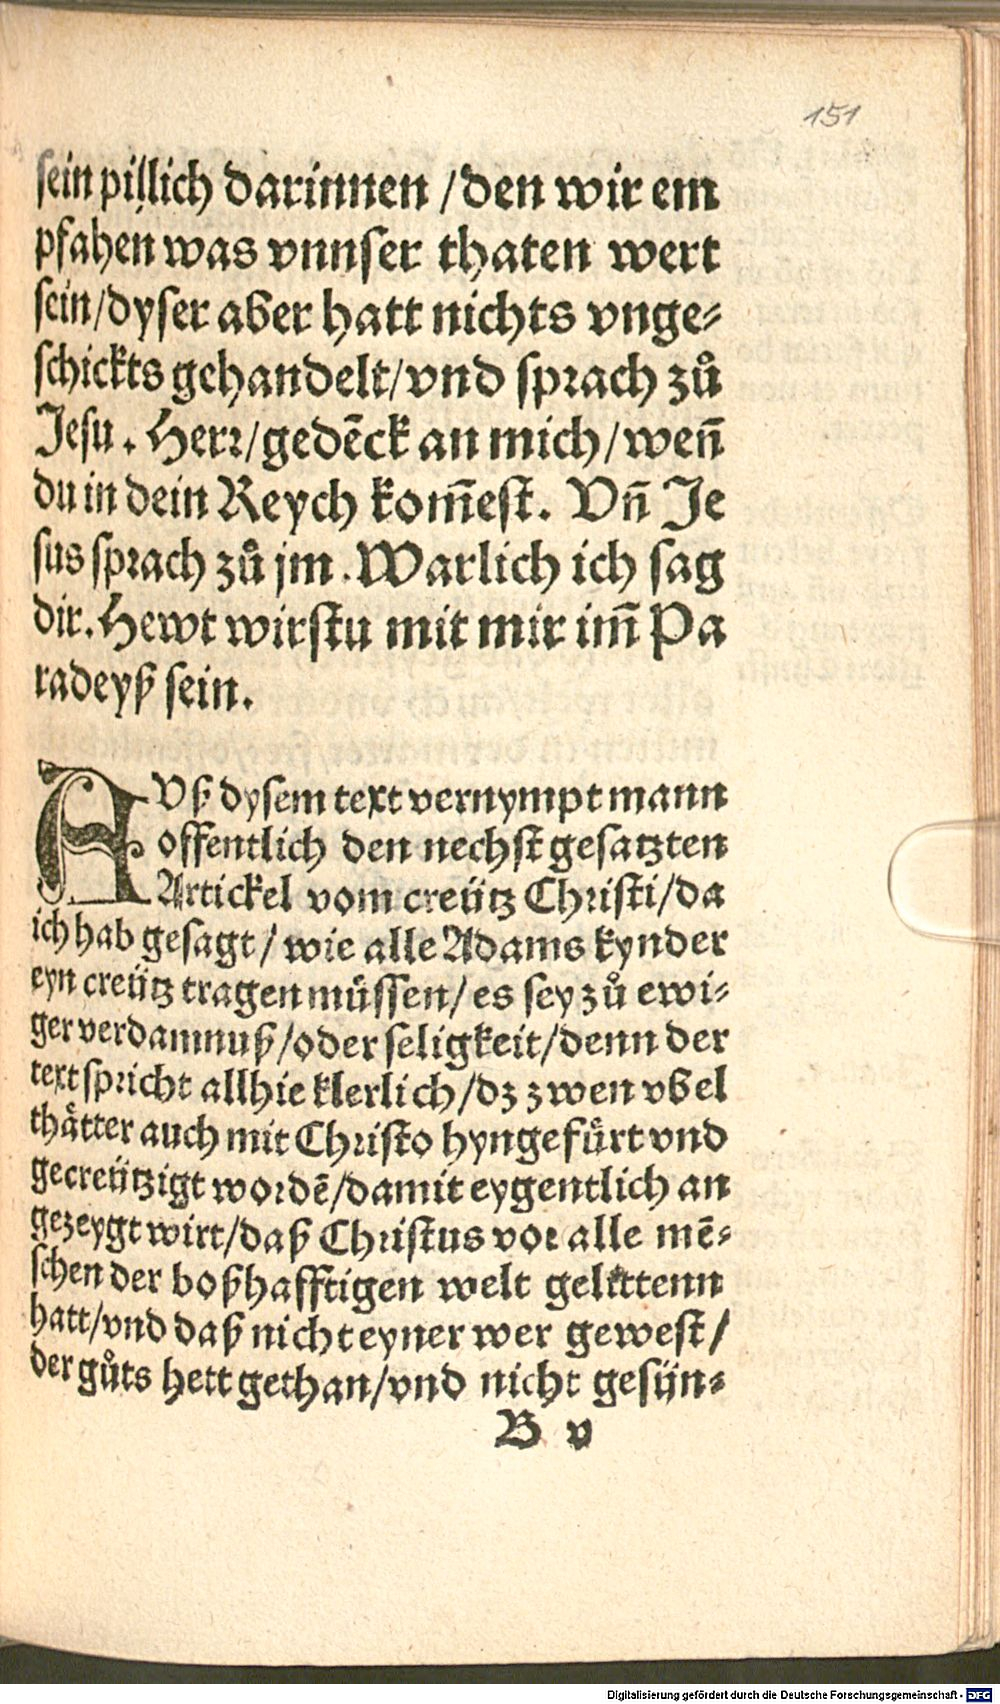 151
sein pillich darinnen /den wir em
pfahen was vnnser thaten wert
sein/dyser aber hatt nichts vnge-
schickts gehandelt/vnd sprach zů
Jesu. Herr/gedēck an mich/weñ
du in dein Reych kom̄est. Vñ Je
sus sprach zů jm. Warlich ich sag
dir. Hewt wirstu mit mir im̄ Pa
radeyß sein.
AVß dysem text vernympt mann
offentlich den nechst gesatzten
Artickel vom creütz Christi/da
ich hab gesagt/ wie alle Adams kynder
eyn creütz tragen müssen/ es sey zů ewi-
ger verdamnuß/oder seligkeit/denn der
text spricht allhie klerlich/dz zwen vbel
thåtter auch mit Christo hyngefürt vnd
gecreützigt wordē/damit eygentlich an
gezeygt wirt/daß Christus vor alle mē-
schen der boßhafftigen welt gelittenn
hatt/vnd daß nicht eyner wer gewest/
der gůts hett gethan/vnd nicht gesün-
B v
Digitalisierung gefördert durch die Deutsche Forschungsgemeinschaft - DFG